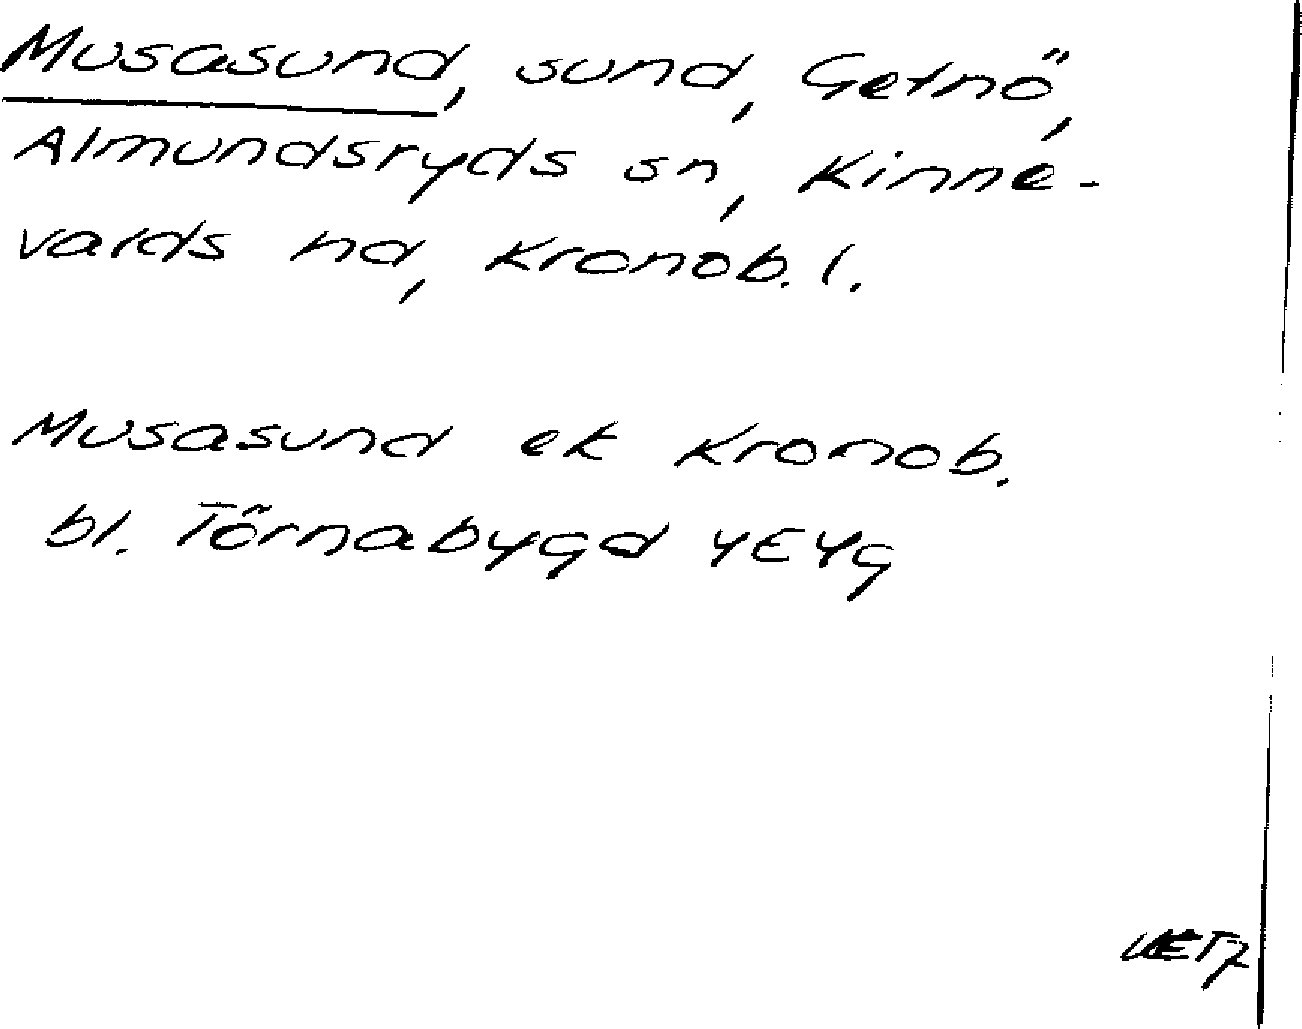 Musasund, sund, Getnö,
Almundsryds sn, Kinne-
valds hd, Kronob. l.
Musasund ek Kronob.
bl. Törnabygd 4E4g